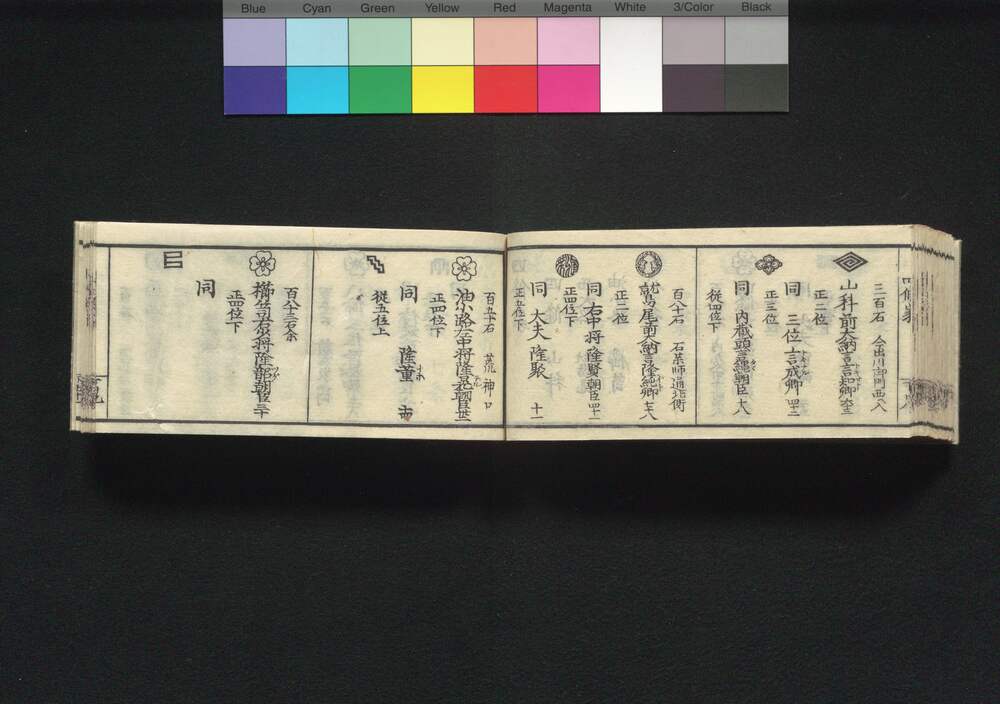 Blue Cyan Green Yellow Red Magenta White 3/Color Black
三百石 今出川御門西へ入
山科前大納言言知卿
正二位
同 三位言成卿 四十三
正三位
同 内蔵頭言縄朝臣 十八
従四位下
百八十石 石薬師通北衡
鷲尾前大納言隆純卿 七十八
正二位
同 右中将隆賢朝臣 四十二
正四位下
同 大夫隆聚 十一
正五位下
百五十石 荒神口
油小路右中将隆晃朝臣
正四位下
同 隆董
従五位上
百八十三石余
櫛笥右少将隆韶朝臣 三十
正四位下
同